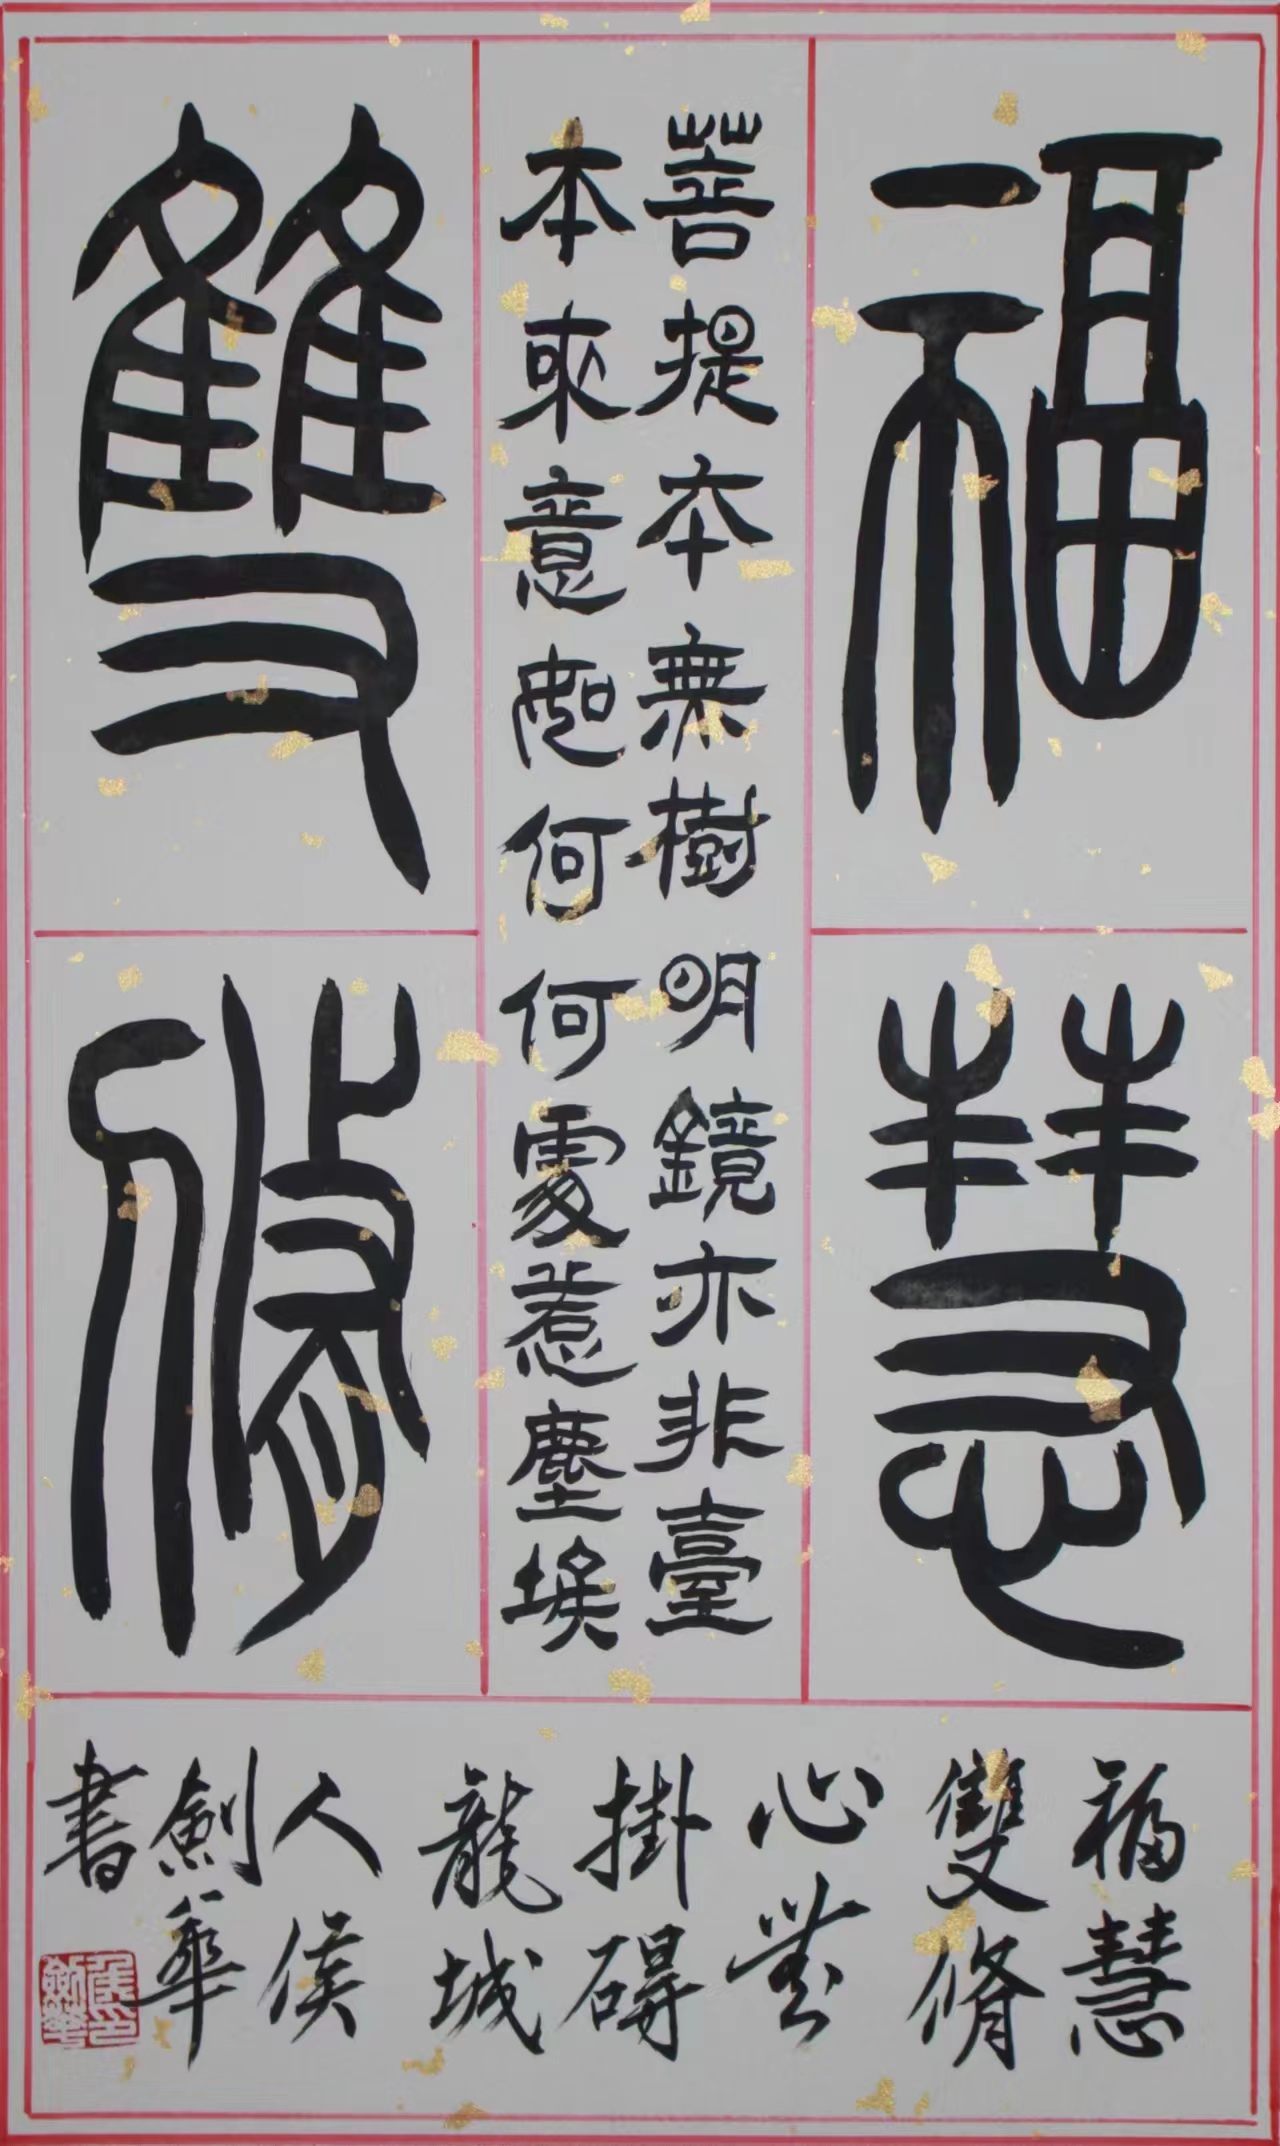 福慧
雙修
菩提本無樹明鏡亦非臺
本來意如何何處惹塵埃
福慧
雙脩
心無
掛礙
龍城
人侯
劍華
書
侯印
劍華